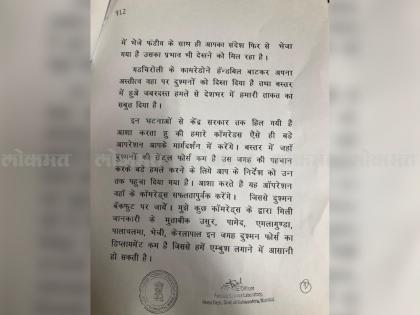 912
में भेजे फंडींग के साथ ही आपका संदेश फिर से भेजा
गया है उसका प्रभाव भी देखने को मिल रहा है।
गडचिरोली के कामरेडोने हॅन्डबिल बाटकर अपना
अस्तीत्व वहा पर दुश्मनों को दिखा दिया है तथा बस्तर
में हुअे जबरदस्त हमले से देशभर में हमारी ताकत का
सबुत दिया है।
इन घटनाओं से केंद्र सरकार तक हिल गयी है
आशा करता हु की हमारे कॉमरेडस ऐसे ही बडे
आपरेशन आपके मार्गदर्शन में करेंगे। बस्तर में जहाँ
दुश्मनों की सेंट्रल फोर्स कम है उस जगह की पहचान
करके बडे हमले करने के लिये आप के निर्देश को उन
तक पहुचा दिया गया है। आशा करते है यह ऑपरेशन
वहाँ के कॉमरेडस सफलतापुर्वक करेंगे। जिससे दुश्मन
बॅकफुट पर जायें। मुझे कुछ कॉमरेडस के द्वारा मिली
जानकारी के मुताबीक उसुर, पामेद, एमलागुण्डा,
पालाचलमा, भेजी, केरलापाल इन जगह दुश्मन फोर्स का
डिप्लायमेंट कम है जिससे हमें एम्बुश लगाने में आसानी
हो सकती है।
लोकमत
लोकमत